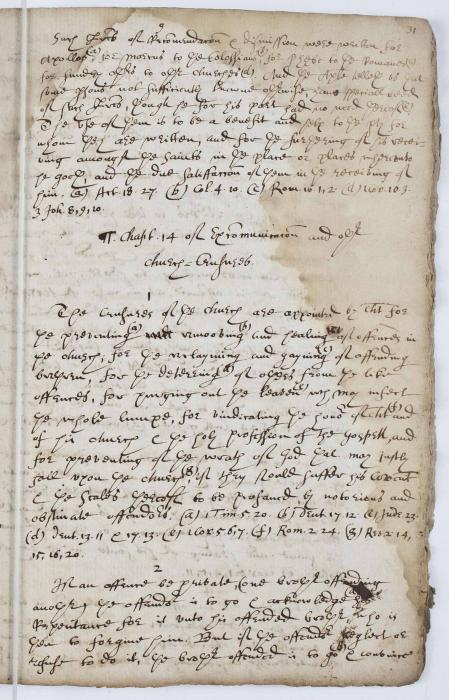 9
31
Such Lr̃es of Recomendacõn & dismission were written for
Apollos(a) for Marcus to the Colossians(b) for Phebe to the Romanes(c)
for sundry others to other Churches(d). And the Aple telleth us that
some p̃sons not sufficiently knowne otherwise have speciall need
of such Lr̃es though he for his part had no need thereof.
The use of them is to be a benefit and help to the pty for
whom they are written, and for the furthering of his recei-
ving amongst the Saints in the place or places whereunto
he goeth, and the due satisfaction of them in the receiving of
him. (a) Act: 18. 27. (b) Col: 4. 10. (c) Rom. 16. 1, 2. (d)
3 Joh. 8, 9, 10.
¶ Chapt. 14 of Excommunicacõn and other
Church-Censures.
1
The Censures of the Church are appointed by Cht for
the preventing, removing and healing of offences in
the Church, for the reclayming and gayning of offending
brethren, for the deterring of others from the like
offences, for purging out the leaven wch may infect
the whole lumpe, for vindicating the honor of Cht and
of his Church & the holy profession of the Gospell, and
for preventing of the wrath of God that may justly
fall upon the Church if they should suffer his Covent
& the seales thereof to be prophaned by notorious and
obstinate offendors. (a) 1 Tim: 5. 20. (b) Deut. 17. 12. (c) Jude. 23.
(d) Deut. 13. 11 & 17. 13. (e) 1 Cor. 5. 6, 7. (f) Rom. 2. 24. (g) Rev. 2. 14,
15, 16, 20.
2
If an offence be private, (one brother offending
another) the offender is to go & acknowledge his
Repentance for it unto his offended brother, who is
then to forgive him. But if the offender neglect or
refuse to do it, the brother offended is to go & convince